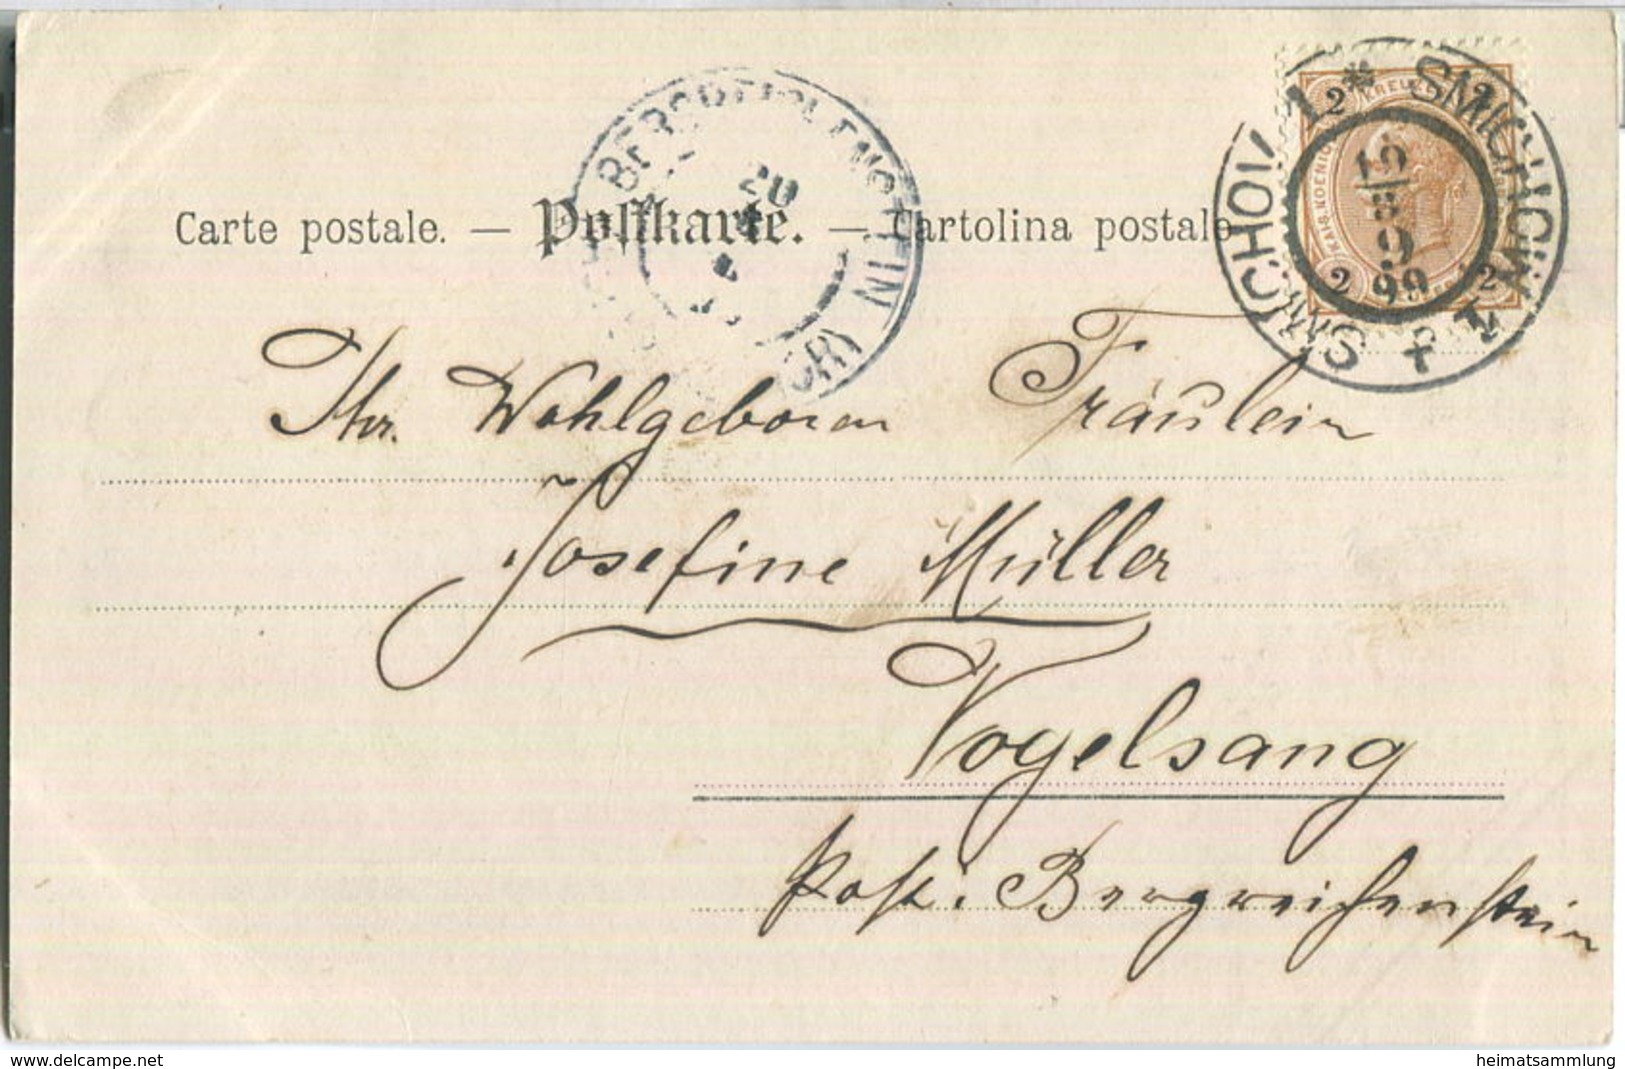 Carte postale. — Postkarte. — Cartolina postale
SMICHOV 1 * SMICHOW 1
19
9
99
2 2
2 2
20
IN
Ihr. Wohlgeboren Fräulein
Josefine Müller
Vogelsang
Post. Bergreichenstein
www.delcampe.net
heimatsammlung